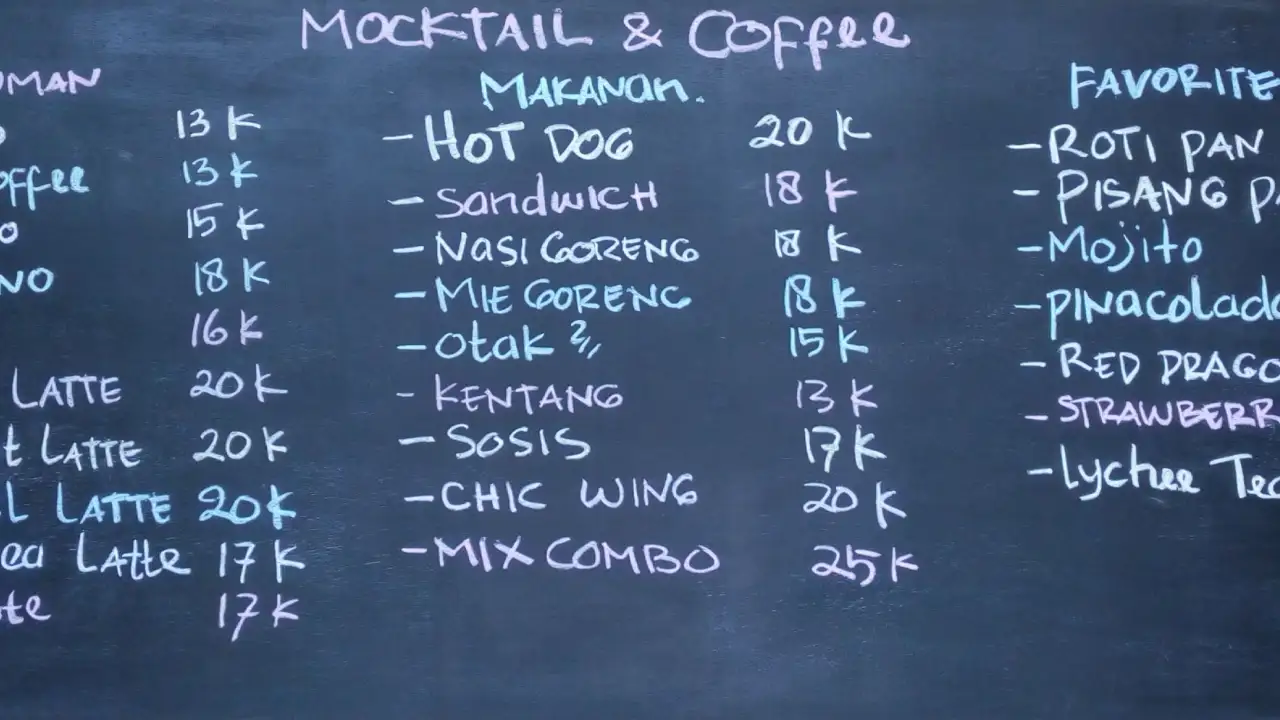 MOCKTAIL & COFFEE
13 K
13 K
15 K
18 K
16 K
LATTE 20 K
LATTE 20 K
LATTE 20 K
LATTE 17 K
17 K
MAKANAN.
- HOT DOG 20 K
- SANDWICH 18 K
- NASI GORENG 18 K
- MIE GORENG 18 K
- OTAK 2 15 K
- KENTANG 13 K
- SOSIS 17 K
- CHIC WING 20 K
- MIX COMBO 25 K
FAVORITE
- ROTI PAN
- PISANG
- MOJITO
- PINACOLADA
- RED
- LYCHEE